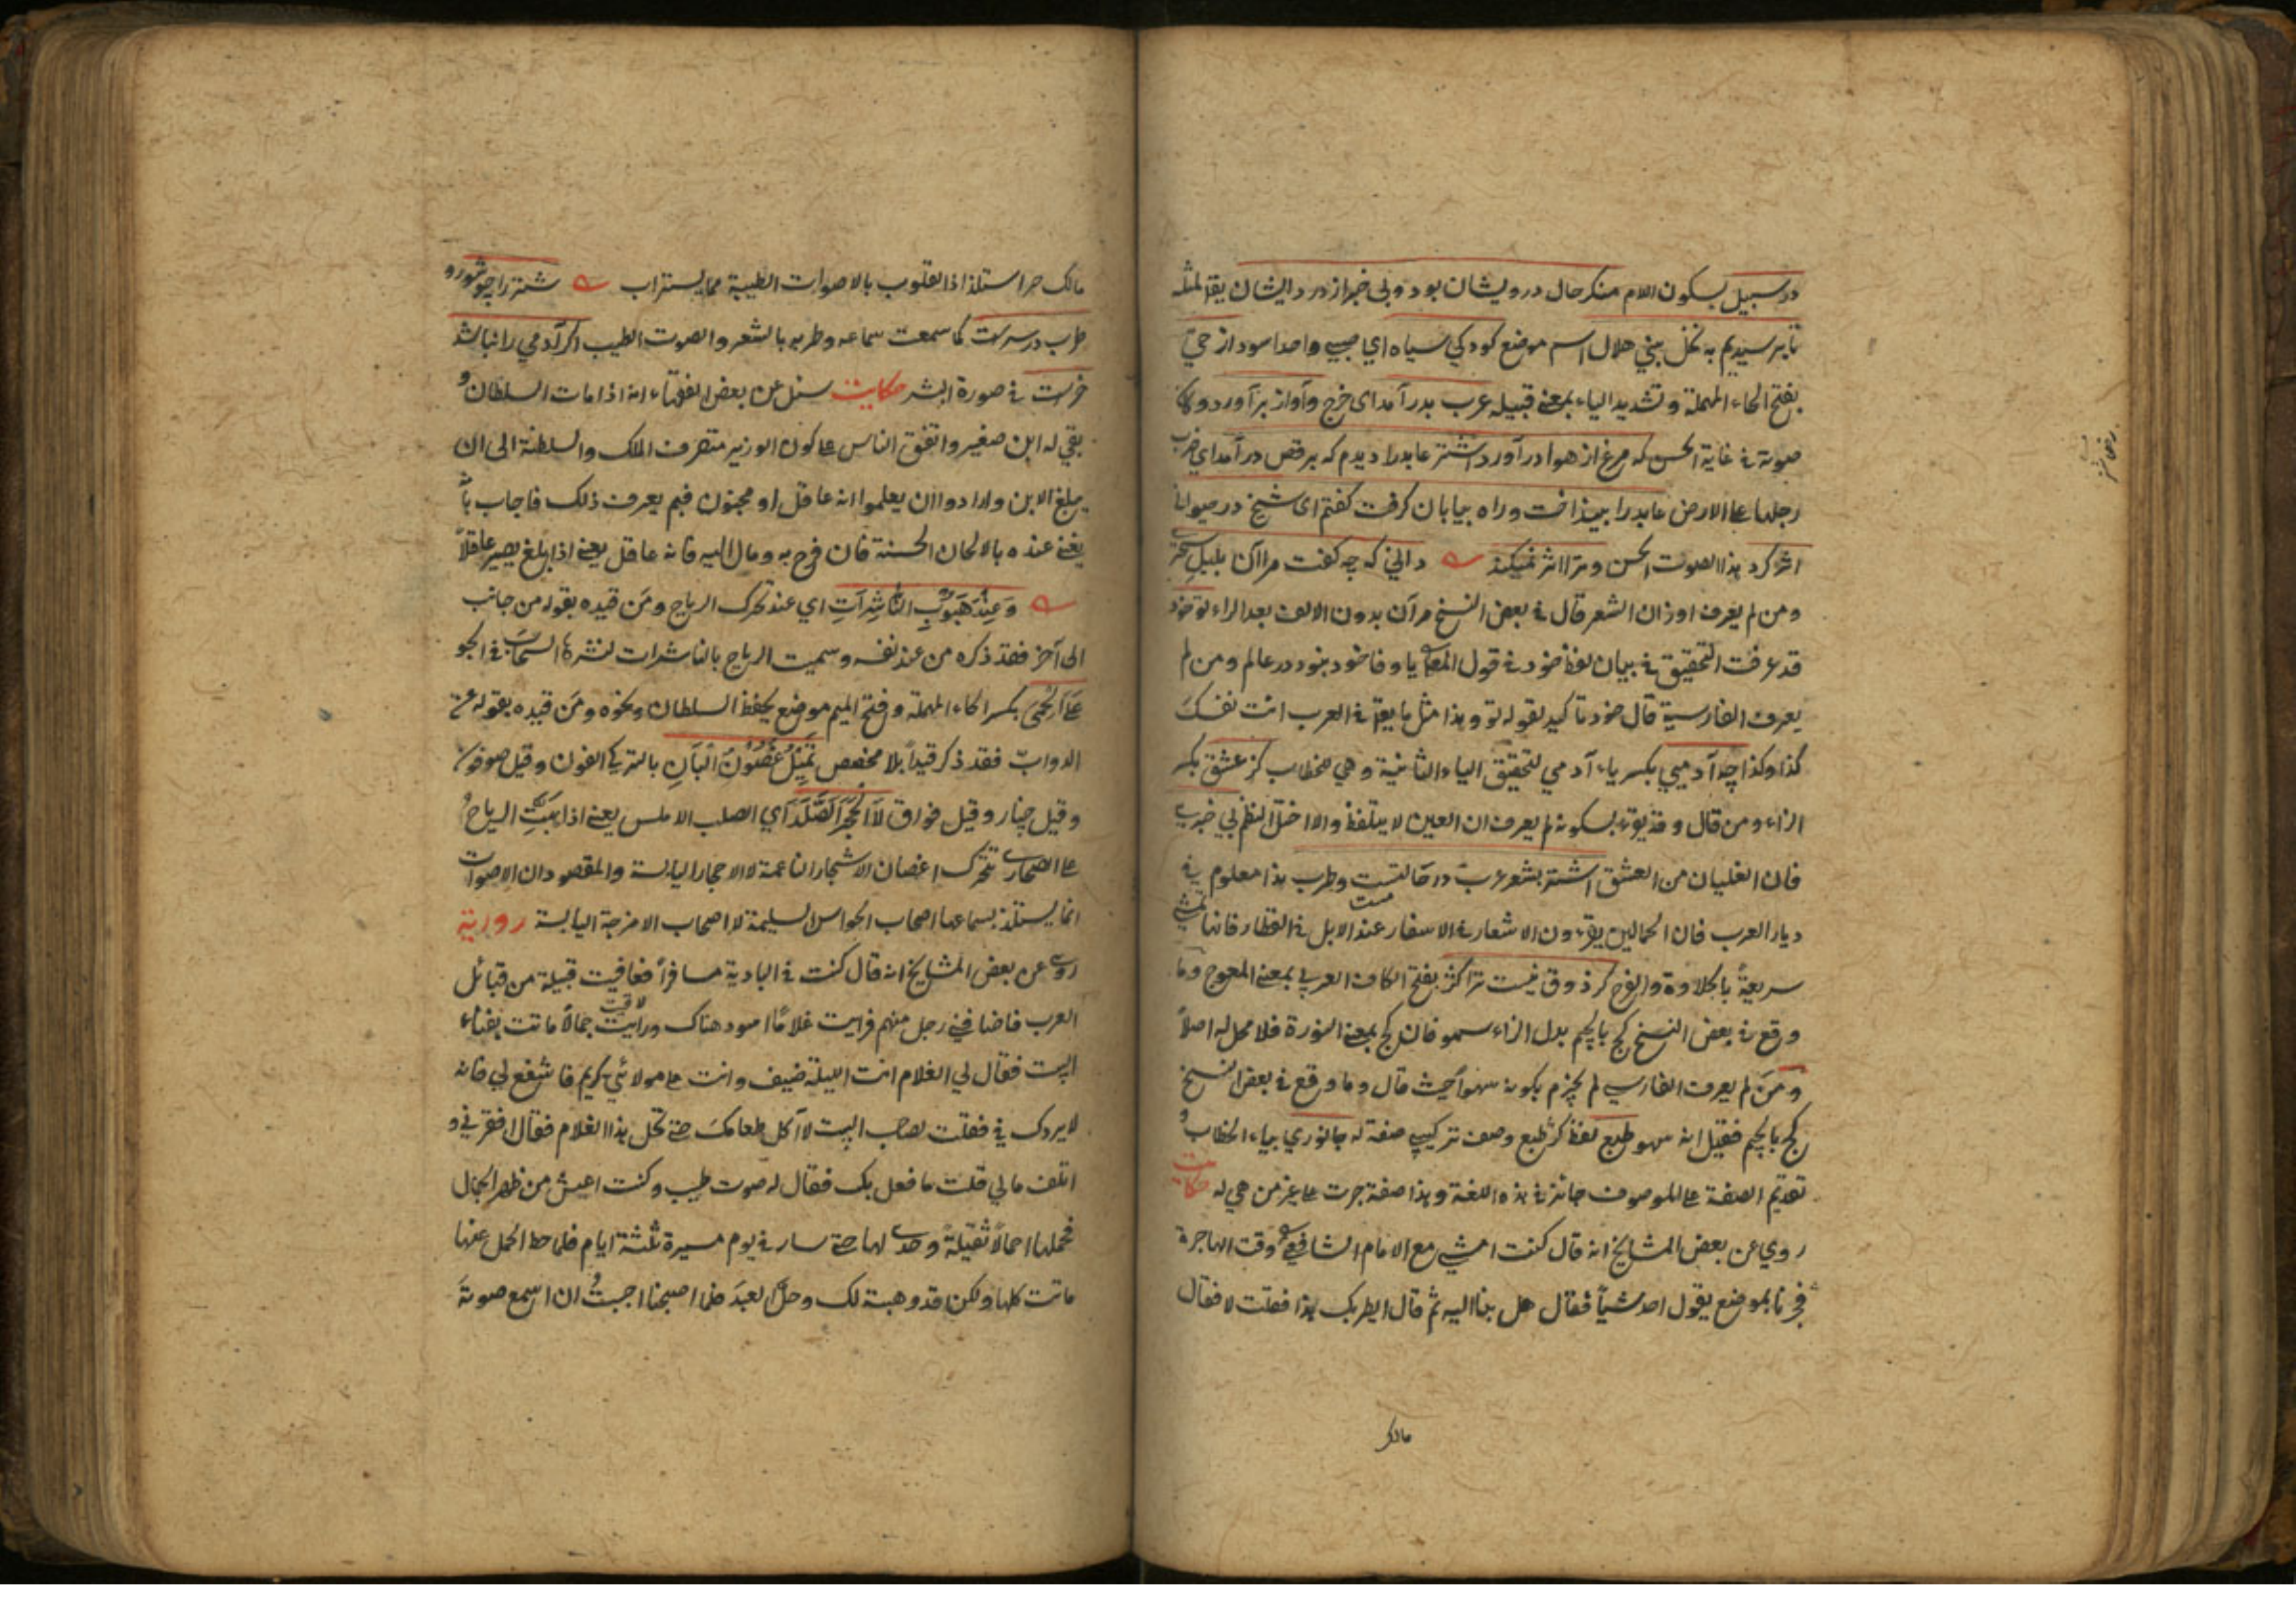 در سبيل بسكون اللام منكر حال درويشان بود وبي خبر از درد ايشان يقال لمثله
تا برسيديم به نخل بني هلال اسم موضع كودكي سياه اي صبي واحد اسود از حي
بفتح الحاء المهملة وتشديد الياء بمعنى قبيله عرب بدر آمد اى خرج وآواز بر آورد وكان
صوته في غاية الحسن كه مرغ از هوا در آورد اشتر عابد را ديدم كه برقص در آمد اي ضرب
رجلها على الارض عابد را بينداخت وراه بيابان كرفت كفتم اى شيخ در حيواني
اثر كرد هذا الصوت الحسن وترا اثر نميكند داني كه چه كفت مرا آن بلبل سحري
ومن لم يعرف اوزان الشعر قال في بعض النسخ مر آن بدون الالف بعد الراء تو خود
قد عرفت التحقيق في بيان لفظ خود في قول المص يا وفا خود نبود در عالم ومن لم
يعرف الفارسية قال خود تاكيد لقوله تو وهذا مثل ما يقع في العرب انت نفسك
كذا وكذا چه آدميي بكسر ياء آدمي لتحقيق الياء الثانية وهي للخطاب كز عشق بكسر
الزاء ومن قال وقد يقرء بسكونه لم يعرف ان العين لا يتلفظ والا اختل النظم بي خبري
فان الغليان من العشق اشتر بشعر عرب در حالتست وطرب هذا معلوم في
ديار العرب فان الجمالين يقرءون الاشعار في الاسفار عند الابل في القطار فانها تمشي
سريعة بالحلاوة والفرح كر ذوق نيست ترا كژ بفتح الكاف العربي بمعنى المعوج وما
ورقع في بعض النسخ كج بالجيم بدل الزاء سهو فان كج بمعنى النورة فلا محل له اصلاً
ومن لم يعرف الفارسي لم يجزم بكونه سهواً حيث قال وما وقع في بعض النسخ
كج بالجيم فقيل انه سهو طبع لفظ كژ طبع وصف تركيبي صفة له جانوري بياء الخطاب و
تقديم الصفة على الموصوف جائز في هذه اللغة وهذا صفة جرت على غير من هي له حكايت
روي عن بعض المشايخ انه قال كنت امشي مع الامام الشافعي وقت الهاجرة
فجزنا بموضع يقول احد شيأ فقال هل بنا اليه ثم قال ايطربك هذا فقلت لا فقال
مالك
مالك حس استلذاذ القلوب بالاصوات الطيبة مما يستراب شتر را چو شور و
طرب در سرست كما سمعت سماعه وطربه بالشعر والصوت الطيب اكر آدمي را نباشد
خرست في صورة البشر حكايت سئل عن بعض الفقهاء انه اذا مات السلطان و
بقي له ابن صغير واتفق الناس على كون الوزير متصرف الملك والسلطنة الى ان
يبلغ الابن وارادوا ان يعلموا انه عاقل او مجنون فبم يعرف ذلك فاجاب بأن
يغنى عنده بالالحان الحسنة فان فرح به ومال اليه فانه عاقل يعني اذا بلغ يصير عاقلاً
وَعِنْدَ هُبُوبِ النَّاشِرَاتِ اي عند تحرك الرياح ومن قيده بقوله من جانب
الى آخر فقد ذكره من عند نفسه وسميت الرياح بالناشرات لنشرها السحاب في الجو
عَلَى الْحِمَى بكسر الحاء المهملة وفتح الميم موضع يحفظ السلطان ونحوه ومن قيده بقوله عن
الدواب فقد ذكر قيداً بلا مخصص تَمِيلُ غُصُونُ الْبَانِ بالتركي الفون وقيل صوفون
وقيل چنار وقيل قواق لَا الْحَجَرُ الصَّلْدُ اي الصلب الاملس يعني اذا هبت الرياح
على الصحاري تتحرك اغصان الاشجار الناعمة لا الاحجار اليابسة والمقصود ان الاصوات
انما يستلذ بسماعها اصحاب الحواس السليمة لا اصحاب الامزجة اليابسة رواية
روي عن بعض المشايخ انه قال كنت في البادية مسافراً فوافيت قبيلة من قبائل
لاقيت
العرب فاضافني رجل منهم فرايت غلاماً اسود هناك ورايت جمالاً ماتت بفناء
البيت فقال لي الغلام انت الليلة ضيف وانت على مولائي كريم فاشفع لي فانه
لا يردك في فقلت لصاحب البيت لا آكل طعامك حتى تحل هذا الغلام فقال افقرني و
اتلف مالي قلت ما فعل بك فقال له صوت طيب وكنت اعيش من ظهر الجمال
فحملها احمالاً ثقيلةً وحدى لها حتى سار في يوم مسيرة ثلثة ايام فلما حط الحمل عنها
ماتت كلها ولكن قد وهبته لك وحل العبد فلما اصبحنا احببت ان اسمع صوته